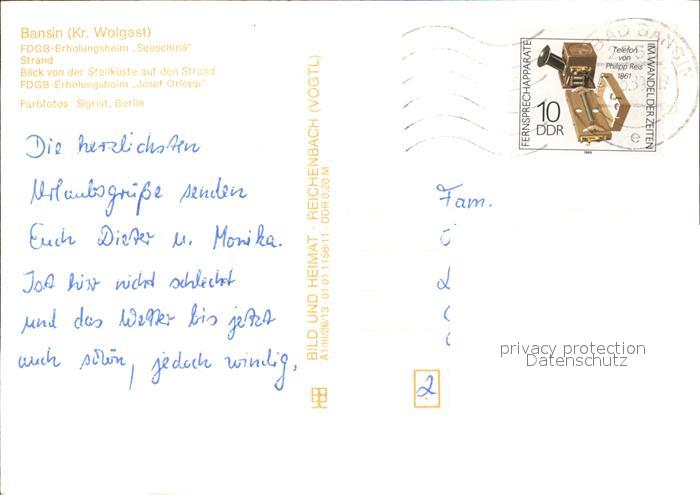 Bansin (Kr. Wolgast)
FDGB-Erholungsheim „Seeschloß"
Strand
Blick von der Steilküste auf den Strand
FDGB-Erholungsheim „Josef Orlopp"
Farbfotos: Sigrist, Berlin
Die herzlichsten
Urlaubsgrüße senden
Euch Dieter u. Monika.
Ist hier nicht schlecht
und das Wetter bis jetzt
auch schön, jedoch windig.
BILD UND HEIMAT · REICHENBACH (VOGTL)
A1/III/26/13 · 01 01 1158/11 · DDR 0,20 M
FERNSPRECHAPPARATE
IM WANDEL DER ZEITEN
Telefon
von
Philipp Reis
1861
10
DDR
1989
BAD BANSIN
e
Fam.
2
privacy protection
Datenschutz